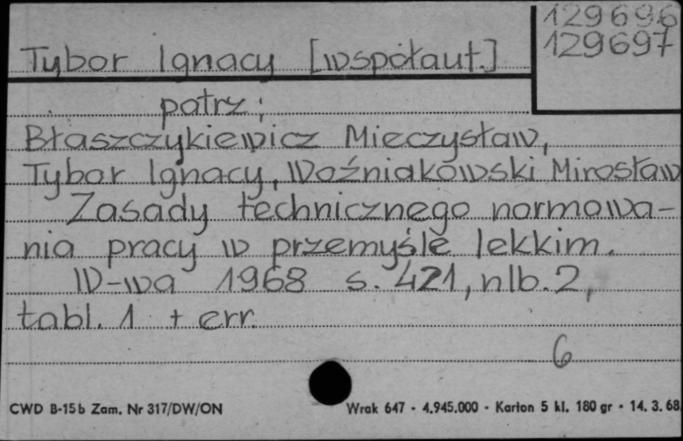 129696
129697
Tybor Ignacy [współaut.]
patrz:
Błaszczykiewicz Mieczysław,
Tybor Ignacy, Woźniakowski Mirosław
Zasady technicznego normowa-
nia pracy w przemyśle lekkim.
W-wa 1968 s. 421, nlb. 2,
tabl. 1 + err.
6
CWD B-15b Zam. Nr 317/DW/ON Wrak 647 - 4.945.000 - Karton 5 kl. 180 gr - 14. 3. 68